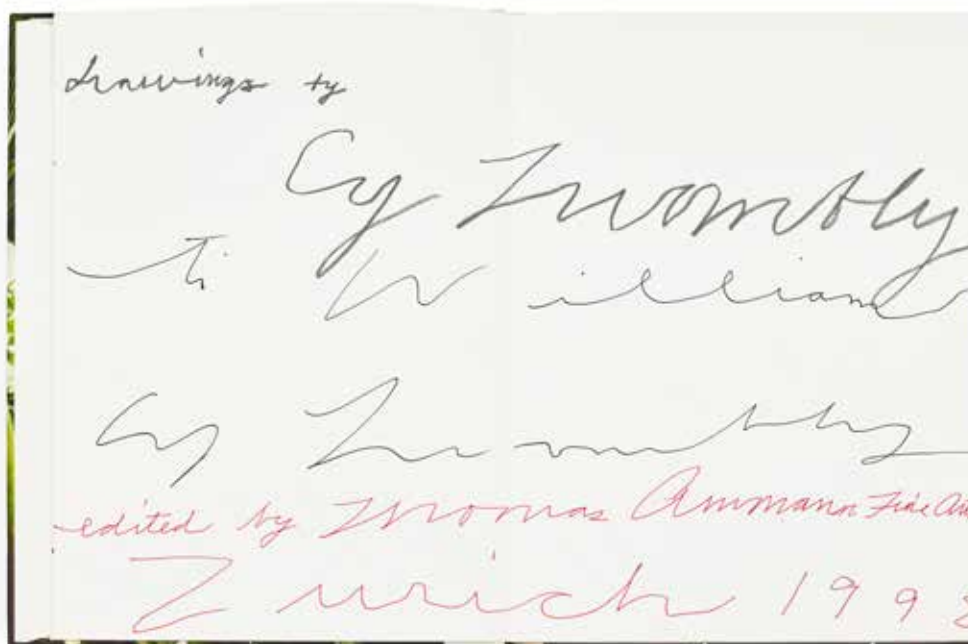 drawings by
Cy Twombly
to William
Cy Twombly
edited by Thomas Ammann Fine
Zurich 1998